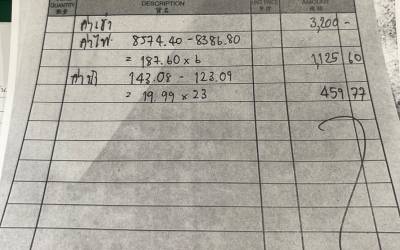 QUANTITY DESCRIPTION UNIT PRICE AMOUNT
數量 貨名 單價 金額
ค่าเช่า 3,200 -
ค่าไฟ 8574.40 - 8386.80
= 187.60 x 6 1,125 60
ค่าน้ำ 143.08 - 123.09
= 19.99 x 23 459 77